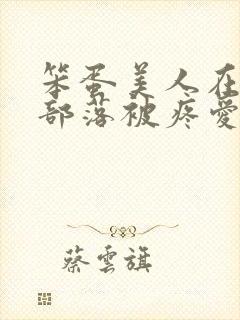 笨蛋美人在
部落被疼愛
蔡雲旗